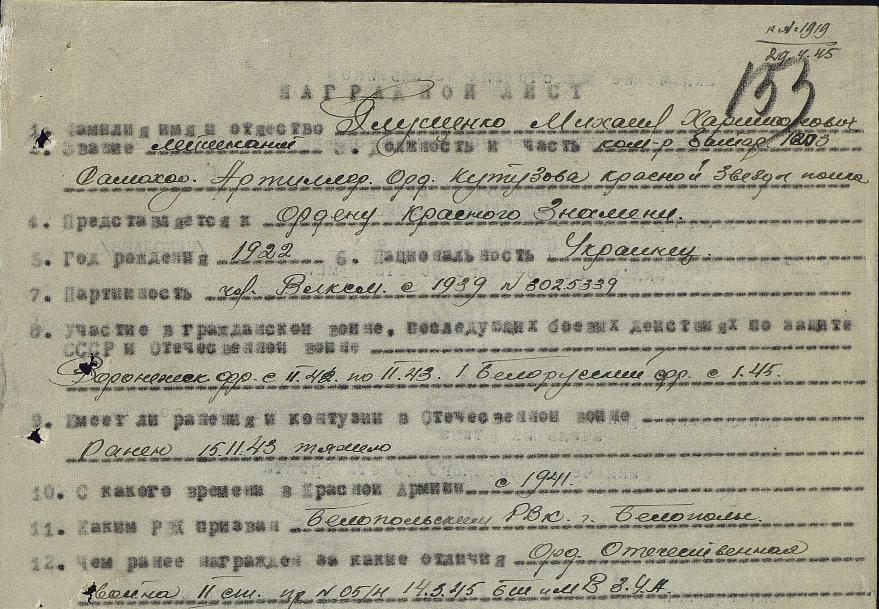 1919
29.4.45
153
НАГРАДНОЙ ЛИСТ
1. Фамилия имя и отчество Глущенко Михаил Харитонович
2. Звание лейтенант 3. Должность и часть ком-р батар 1203
Самоход. Артиллер. Орд. Кутузова Красной Звезды полка
4. Представляется к Ордену Красного Знамени.
5. Год рождения 1922 6. Национальность Украинец.
7. Партийность чл. Влксм. с 1939 N 3025339
8. Участие в гражданской войне, последующих боевых действиях по защите
СССР и Отечественной войне
Воронежск фр. с II.42. по 11.43. 1 Белорусский фр. с 1.45.
9. Имеет ли ранения и контузии в Отечественной войне
Ранен 15.11.43 тяжело
10. С какого времени в Красной Армии с 1941.
11. Каким РВК призван Белопольским РВК. г. Белополье.
12. Чем ранее награжден за какие отличия Орд. Отечественная
война II ст. пр N 05/н 14.3.45